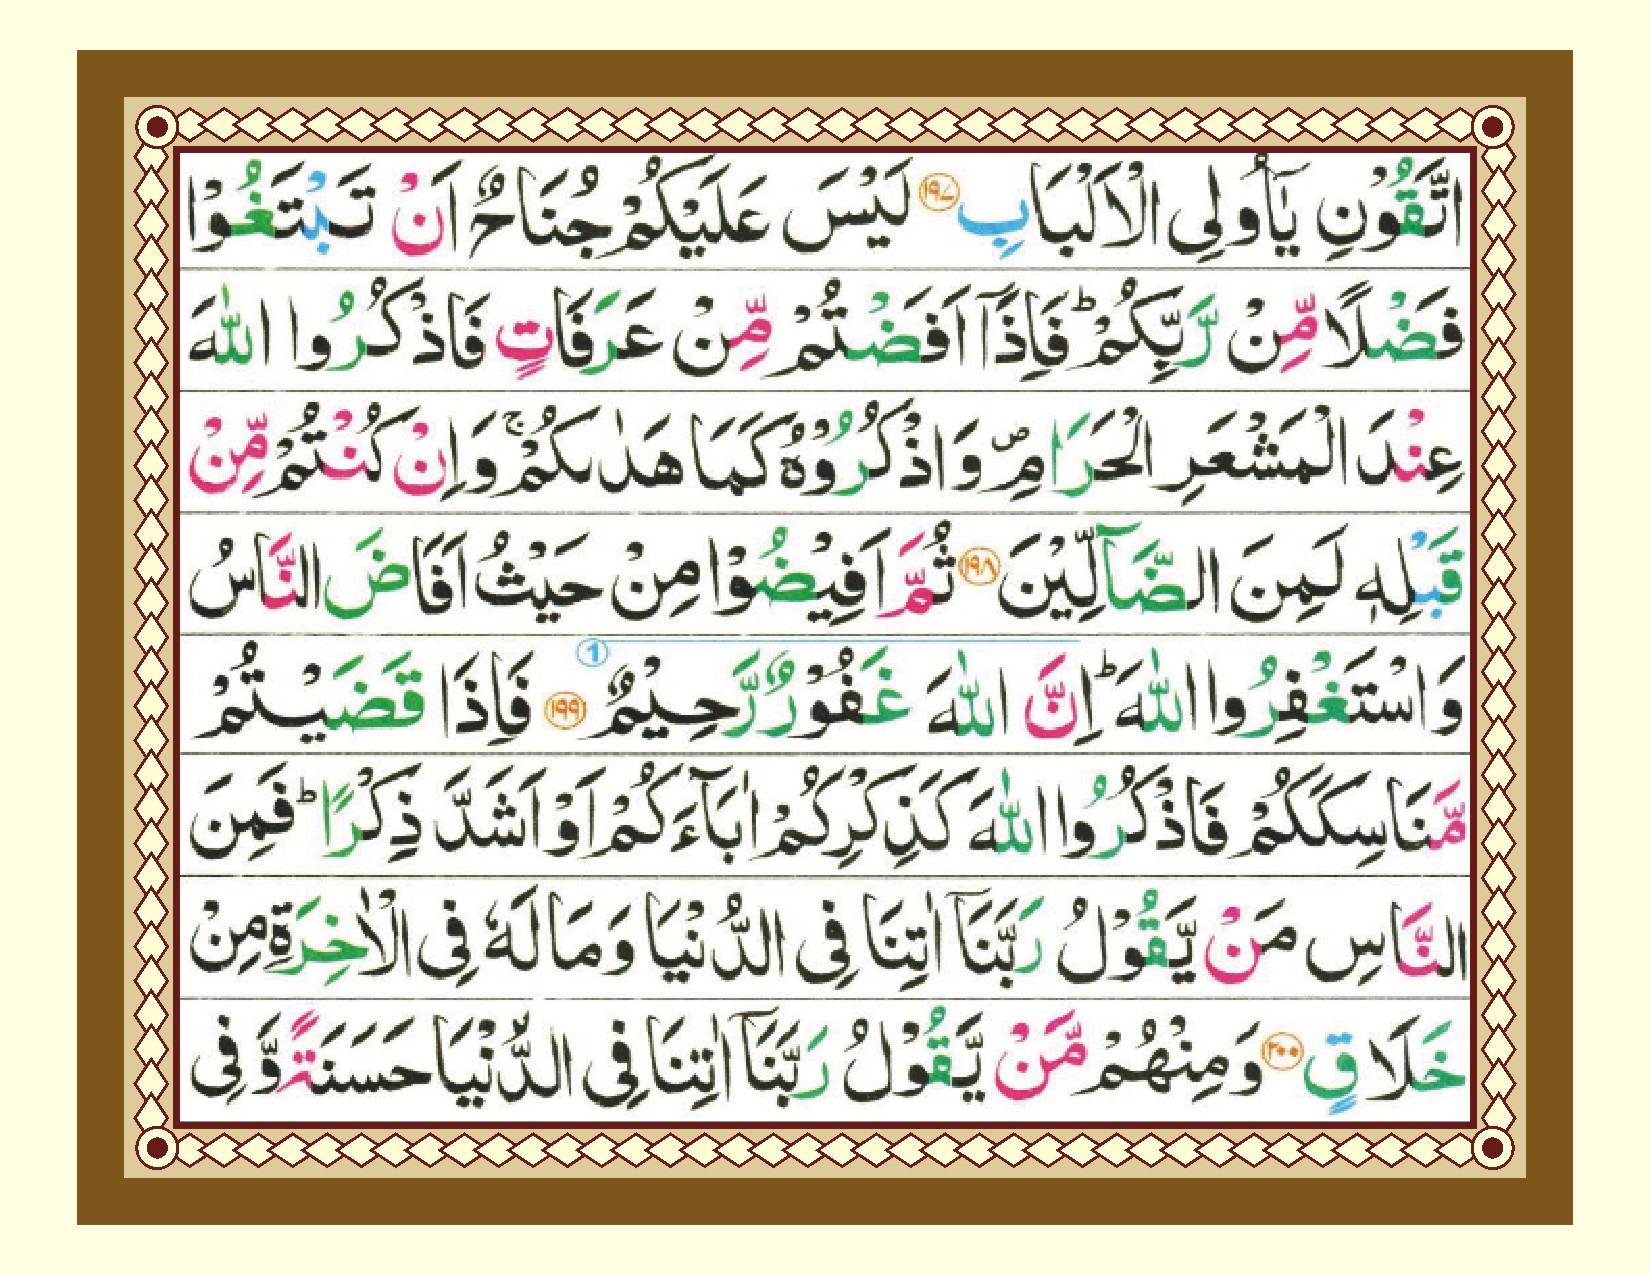 اتَّقُوْنِ يٰۤاُولِى الْاَلْبَابِ ۝۱۹۷ لَيْسَ عَلَيْكُمْ جُنَاحٌ اَنْ تَبْتَغُوْا
فَضْلًا مِّنْ رَّبِّكُمْؕ فَاِذَاۤ اَفَضْتُمْ مِّنْ عَرَفَاتٍ فَاذْكُرُوا اللّٰهَ
عِنْدَ الْمَشْعَرِ الْحَرَامِ۪ وَاذْكُرُوْهُ كَمَا هَدٰىكُمْۚ وَاِنْ كُنْتُمْ مِّنْ
قَبْلِهٖ لَمِنَ الضَّآلِّيْنَ ۝۱۹۸ ثُمَّ اَفِيْضُوْا مِنْ حَيْثُ اَفَاضَ النَّاسُ
وَاسْتَغْفِرُوا اللّٰهَؕ اِنَّ اللّٰهَ غَفُوْرٌ رَّحِيْمٌ 1 ۝۱۹۹ فَاِذَا قَضَيْتُمْ
مَّنَاسِكَكُمْ فَاذْكُرُوا اللّٰهَ كَذِكْرِكُمْ اٰبَآءَكُمْ اَوْ اَشَدَّ ذِكْرًاؕ فَمِنَ
النَّاسِ مَنْ يَّقُوْلُ رَبَّنَاۤ اٰتِنَا فِى الدُّنْيَا وَمَا لَهٗ فِى الْاٰخِرَةِ مِنْ
خَلَاقٍ ۝۲۰۰ وَمِنْهُمْ مَّنْ يَّقُوْلُ رَبَّنَاۤ اٰتِنَا فِى الدُّنْيَا حَسَنَةً وَّفِى